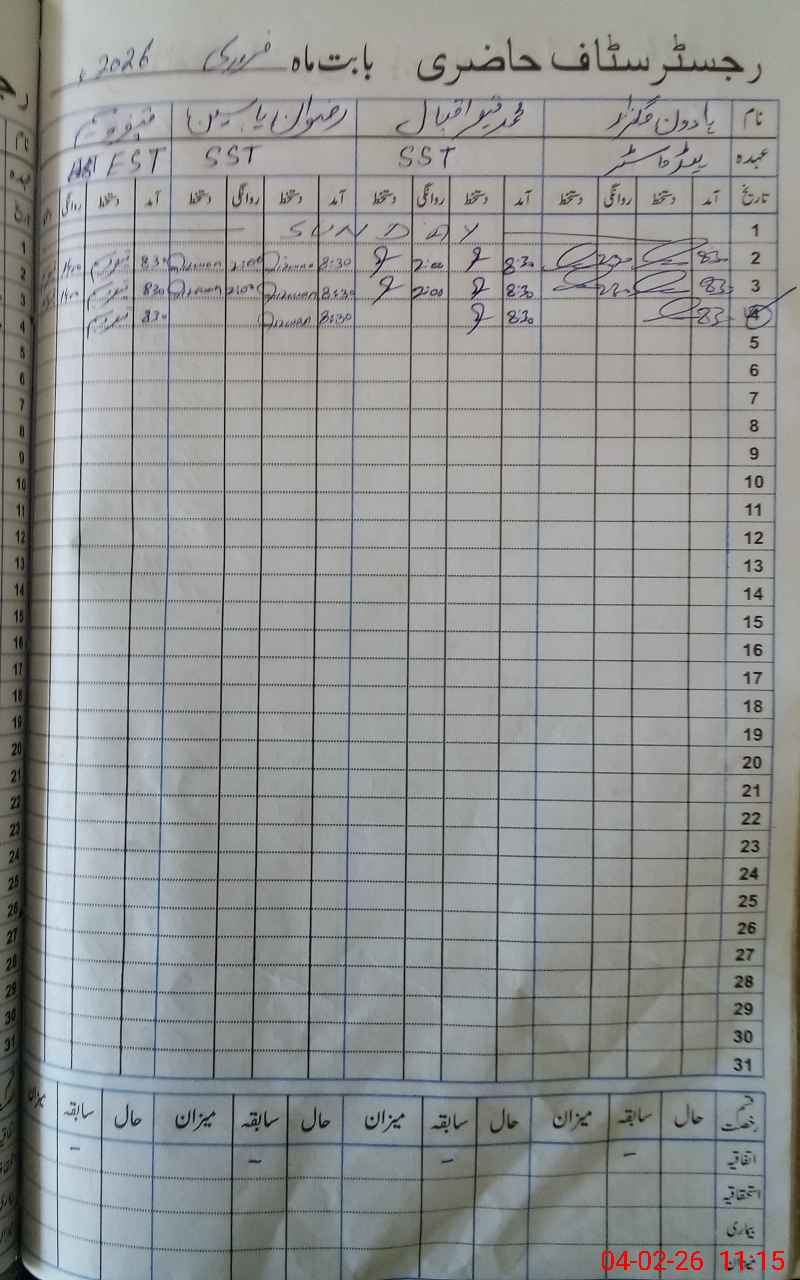 رجسٹر سٹاف حاضری بابت ماہ فروری 2026ء
نام ہارون گلزار محمد قیصر اقبال رضوان یاسین
عہدہ ہیڈ ماسٹر SST SST EST
تاریخ آمد دستخط روانگی دستخط آمد دستخط روانگی دستخط آمد دستخط روانگی دستخط آمد دستخط روانگی
1 SUNDAY
2 830 200 8:30 2:00 8:30 Rizwan 2:00 Rizwan 830 1400
3 830 200 8:30 2:00 8:30 Rizwan 2:00 Rizwan 830 1400
4 830 8:30 8:30 Rizwan 830
5
6
7
8
9
10
11
12
13
14
15
16
17
18
19
20
21
22
23
24
25
26
27
28
29
30
31
قسم رخصت حال سابقہ میزان حال سابقہ میزان حال سابقہ میزان حال سابقہ میزان
اتفاقیہ – – – –
استحقاقیہ
بیماری
میزان
04-02-26 11:15